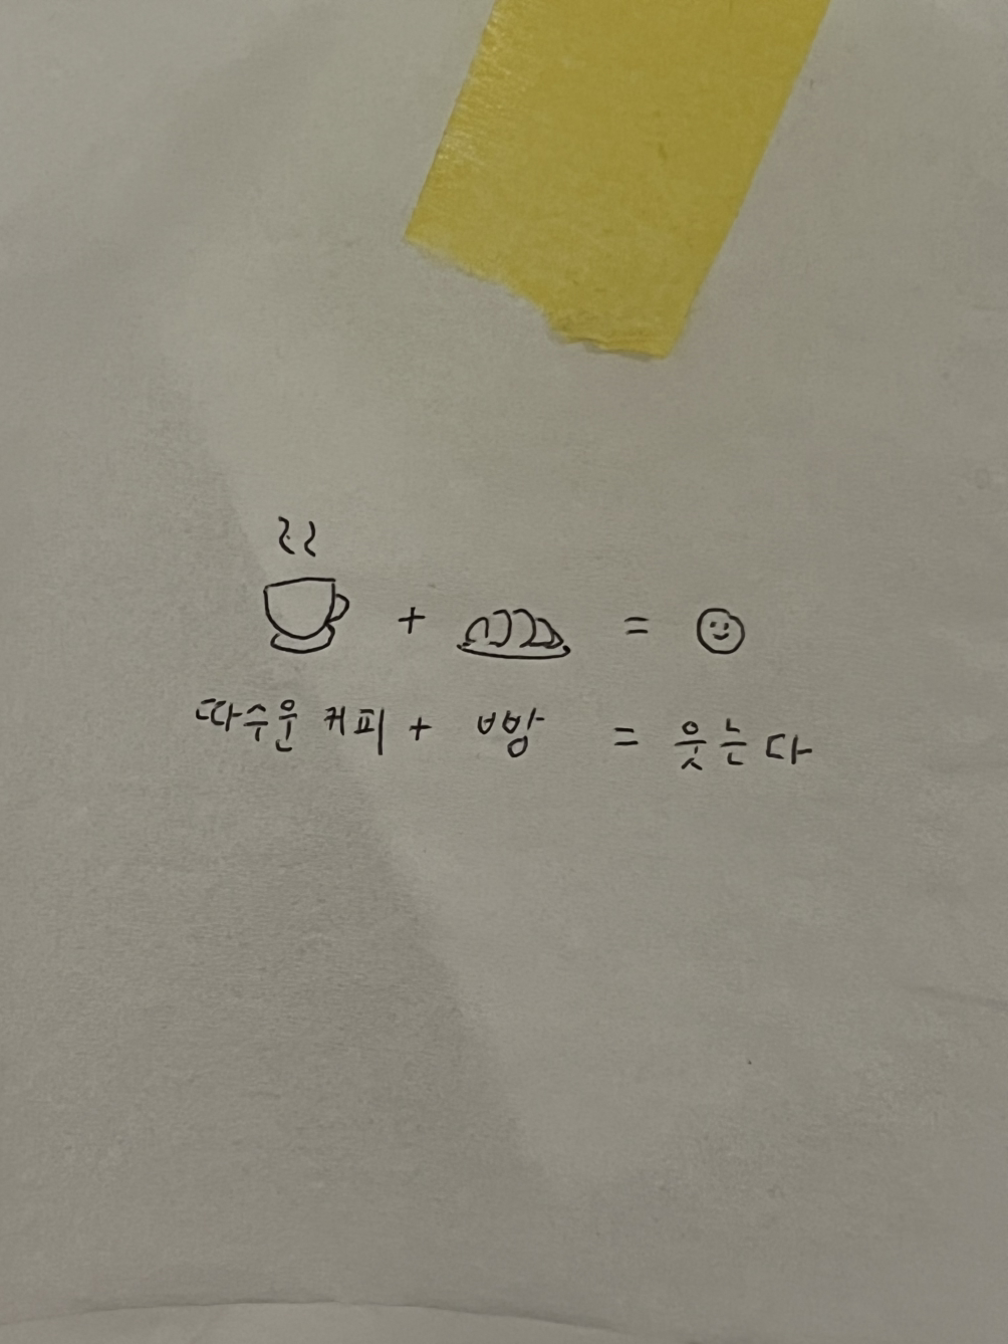 + =
따수운 커피 + 빵 = 웃는다